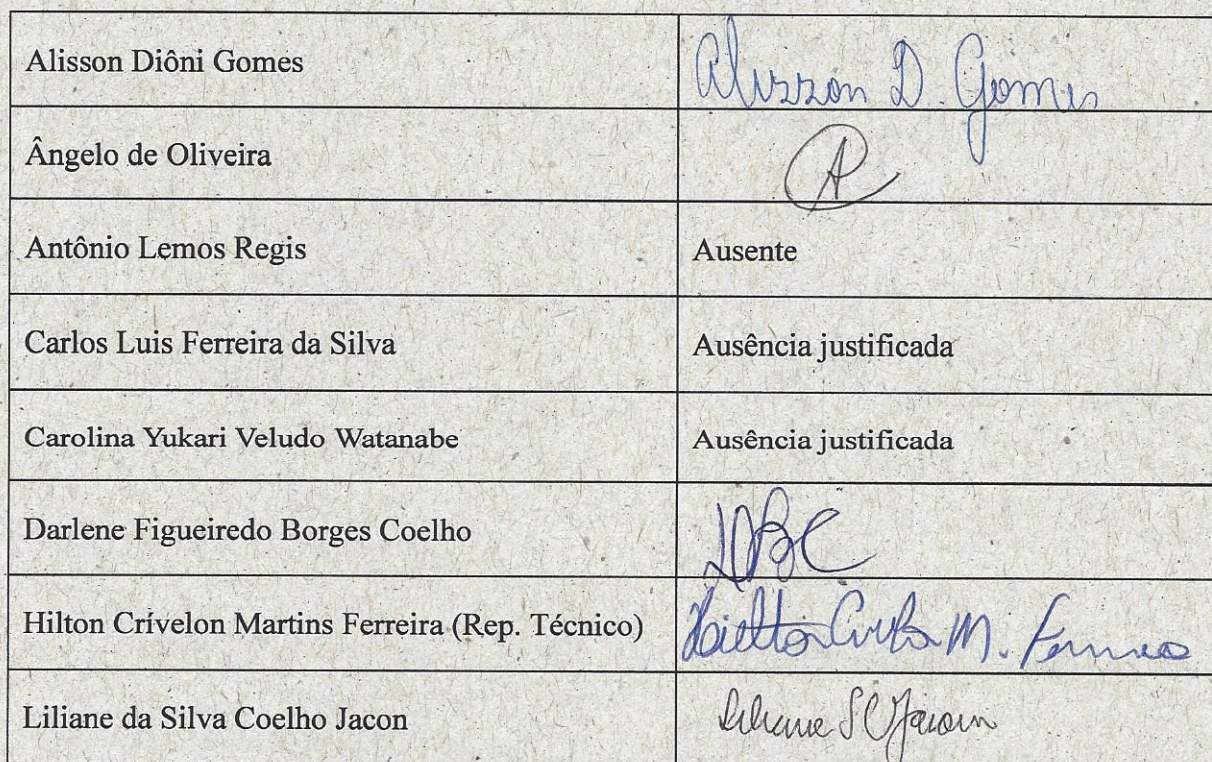 Alisson Diôni Gomes Alisson D. Gomes
Ângelo de Oliveira A
Antônio Lemos Regis Ausente
Carlos Luis Ferreira da Silva Ausência justificada
Carolina Yukari Veludo Watanabe Ausência justificada
Darlene Figueiredo Borges Coelho DBC
Hilton Crívelon Martins Ferreira (Rep. Técnico) M. Ferreira
Liliane da Silva Coelho Jacon Liliane S C Jacon